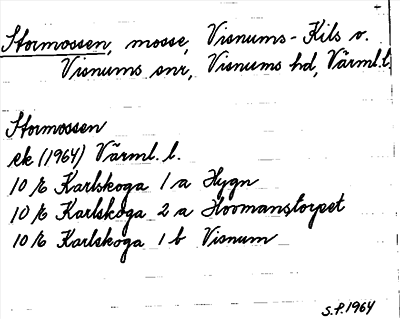 Stormossen, mosse, Visnums-Kils o.
Visnums snr, Visnums hd, Värml. l.
Stormossen
ek (1964) Värml. l.
10 E Karlskoga 1 a Hygn
10 E Karlskoga 2 a Hovmanstorpet
10 E Karlskoga 1 b Visnum
S.P. 1964